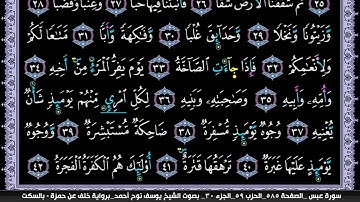 ثُمَّ شَقَقْنَا الْأَرْضَ شَقًّا ٢٦ فَأَنۢبَتْنَا فِيهَا حَبًّا ٢٧ وَعِنَبًا وَقَضْبًا ٢٨
وَزَيْتُونًا وَنَخْلًا ٢٩ وَحَدَآئِقَ غُلْبًا ٣٠ وَفَٰكِهَةً وَأَبًّا ٣١ مَّتَٰعًا لَّكُمْ
وَلِأَنْعَٰمِكُمْ ٣٢ فَإِذَا جَآءَتِ الصَّآخَّةُ ٣٣ يَوْمَ يَفِرُّ الْمَرْءُ مِنْ أَخِيهِ ٣٤
وَأُمِّهِۦ وَأَبِيهِ ٣٥ وَصَٰحِبَتِهِۦ وَبَنِيهِ ٣٦ لِكُلِّ امْرِئٍ مِّنْهُمْ يَوْمَئِذٍ شَأْنٌ
يُغْنِيهِ ٣٧ وُجُوهٌ يَوْمَئِذٍ مُّسْفِرَةٌ ٣٨ ضَاحِكَةٌ مُّسْتَبْشِرَةٌ ٣٩ وَوُجُوهٌ
يَوْمَئِذٍ عَلَيْهَا غَبَرَةٌ ٤٠ تَرْهَقُهَا قَتَرَةٌ ٤١ أُوْلَٰٓئِكَ هُمُ الْكَفَرَةُ الْفَجَرَةُ ٤٢
سورة عبس _الصفحة ٥٨٥_الحزب ٥٩_الجزء ٣٠_ بصوت الشيخ يوسف نوح أحمد_برواية خلف عن حمزة - بالسكت